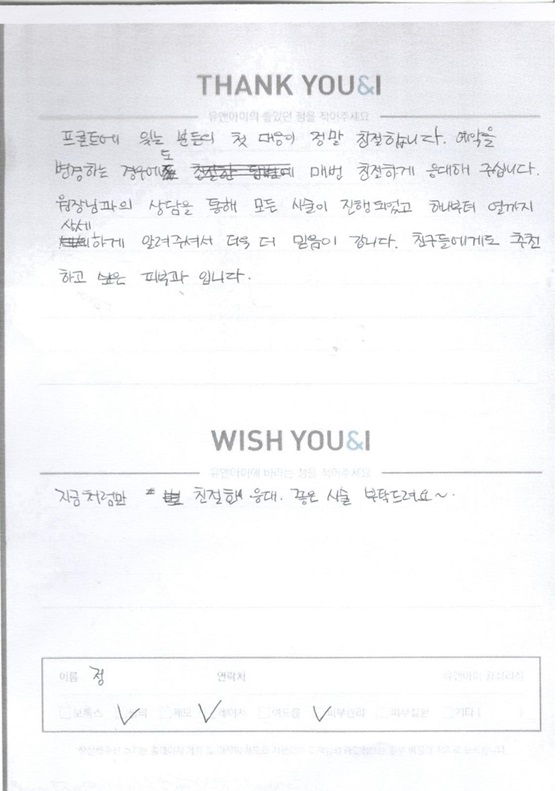 THANK YOU&I
유앤아이의 좋았던 점을 적어주세요
프론트에 있는 분들의 첫 대응이 정말 친절합니다. 예약을
변경하는 경우에도 매번 친절하게 응대해 주십니다.
원장님과의 상담을 통해 모든 시술이 진행되었고 하나부터 열까지
상세하게 알려주셔서 더욱 더 믿음이 갑니다. 친구들에게도 추천
하고 싶은 피부과 입니다.
WISH YOU&I
유앤아이에 바라는 점을 적어주세요
지금처럼만 친절한 응대. 좋은 시술 부탁드려요~.
이름 정 연락처
보톡스 제모 레이저 여드름 피부관리 피부질환 기타 ( )